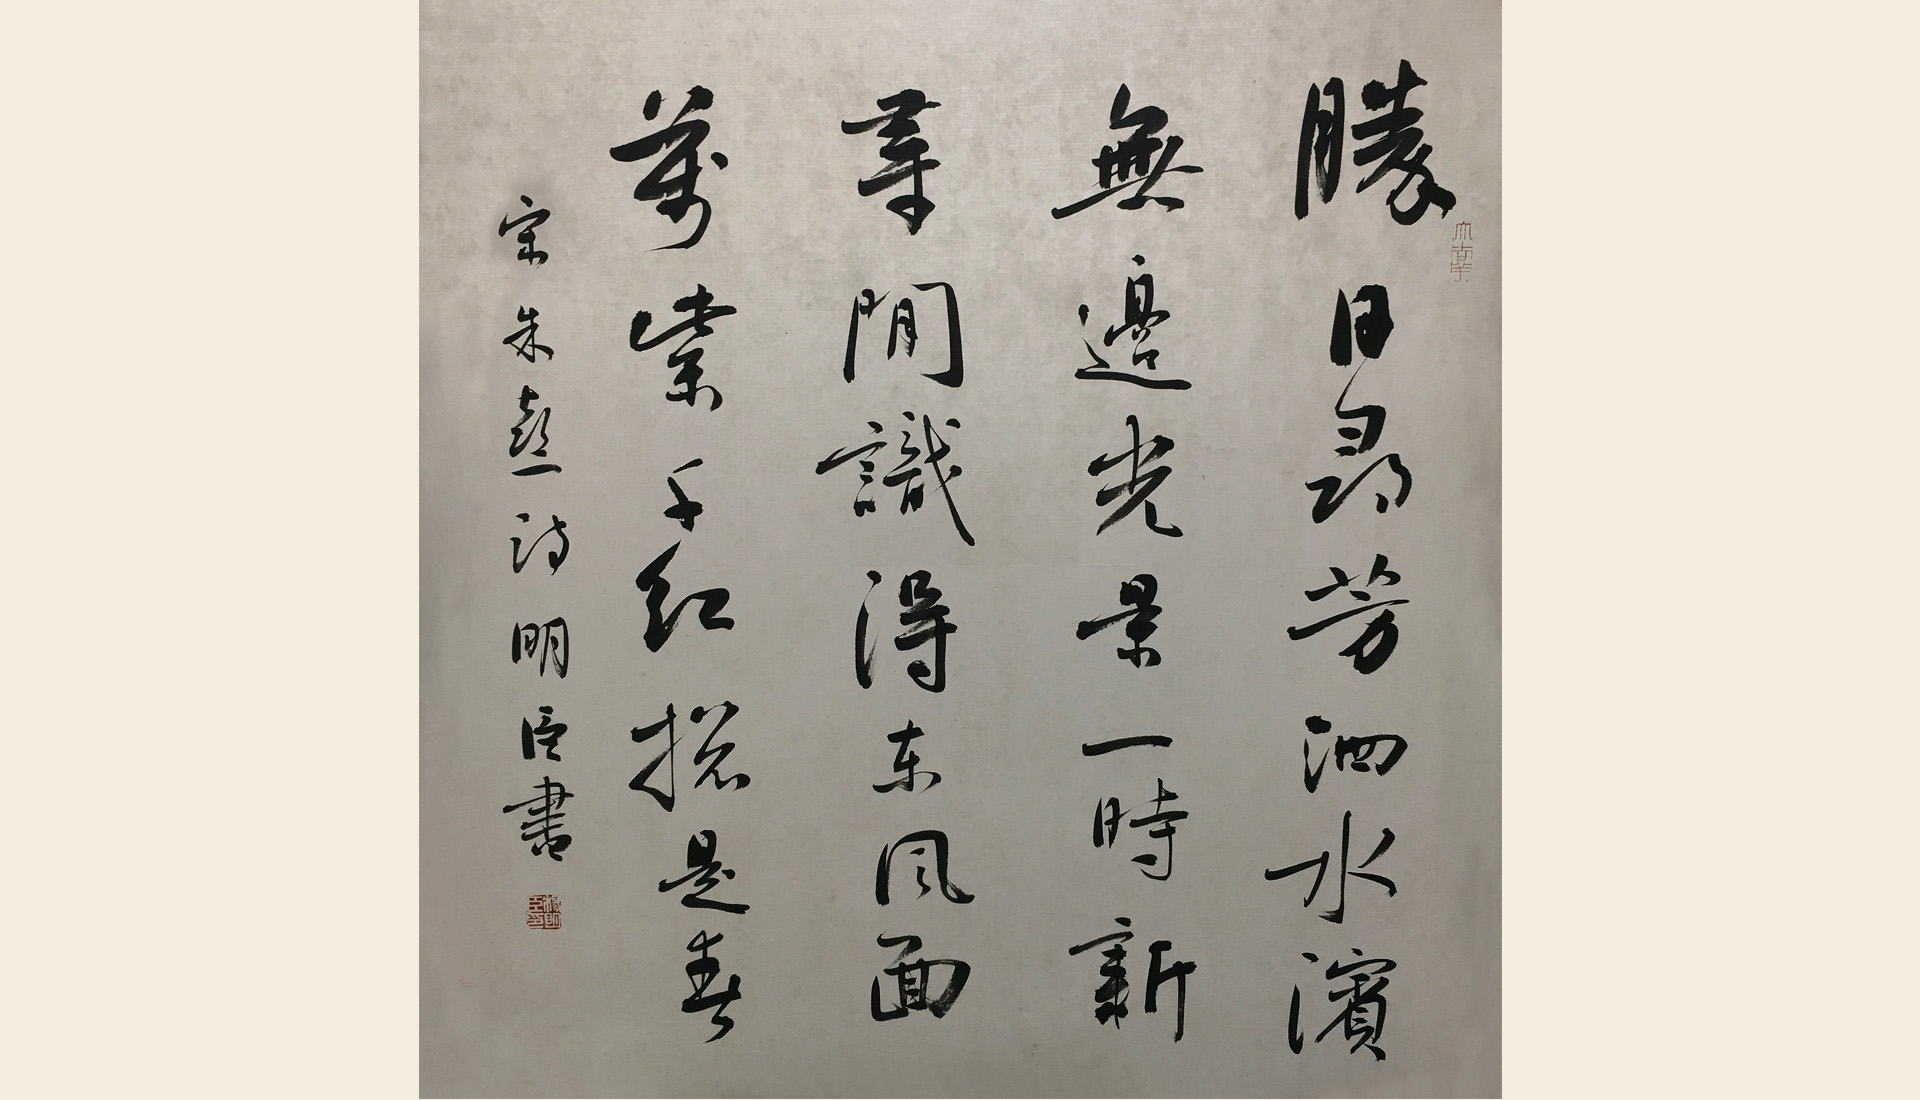 勝日尋芳泗水濱
無邊光景一時新
等閒識得东风面
萬紫千红揔是春
宋朱熹诗明臣書